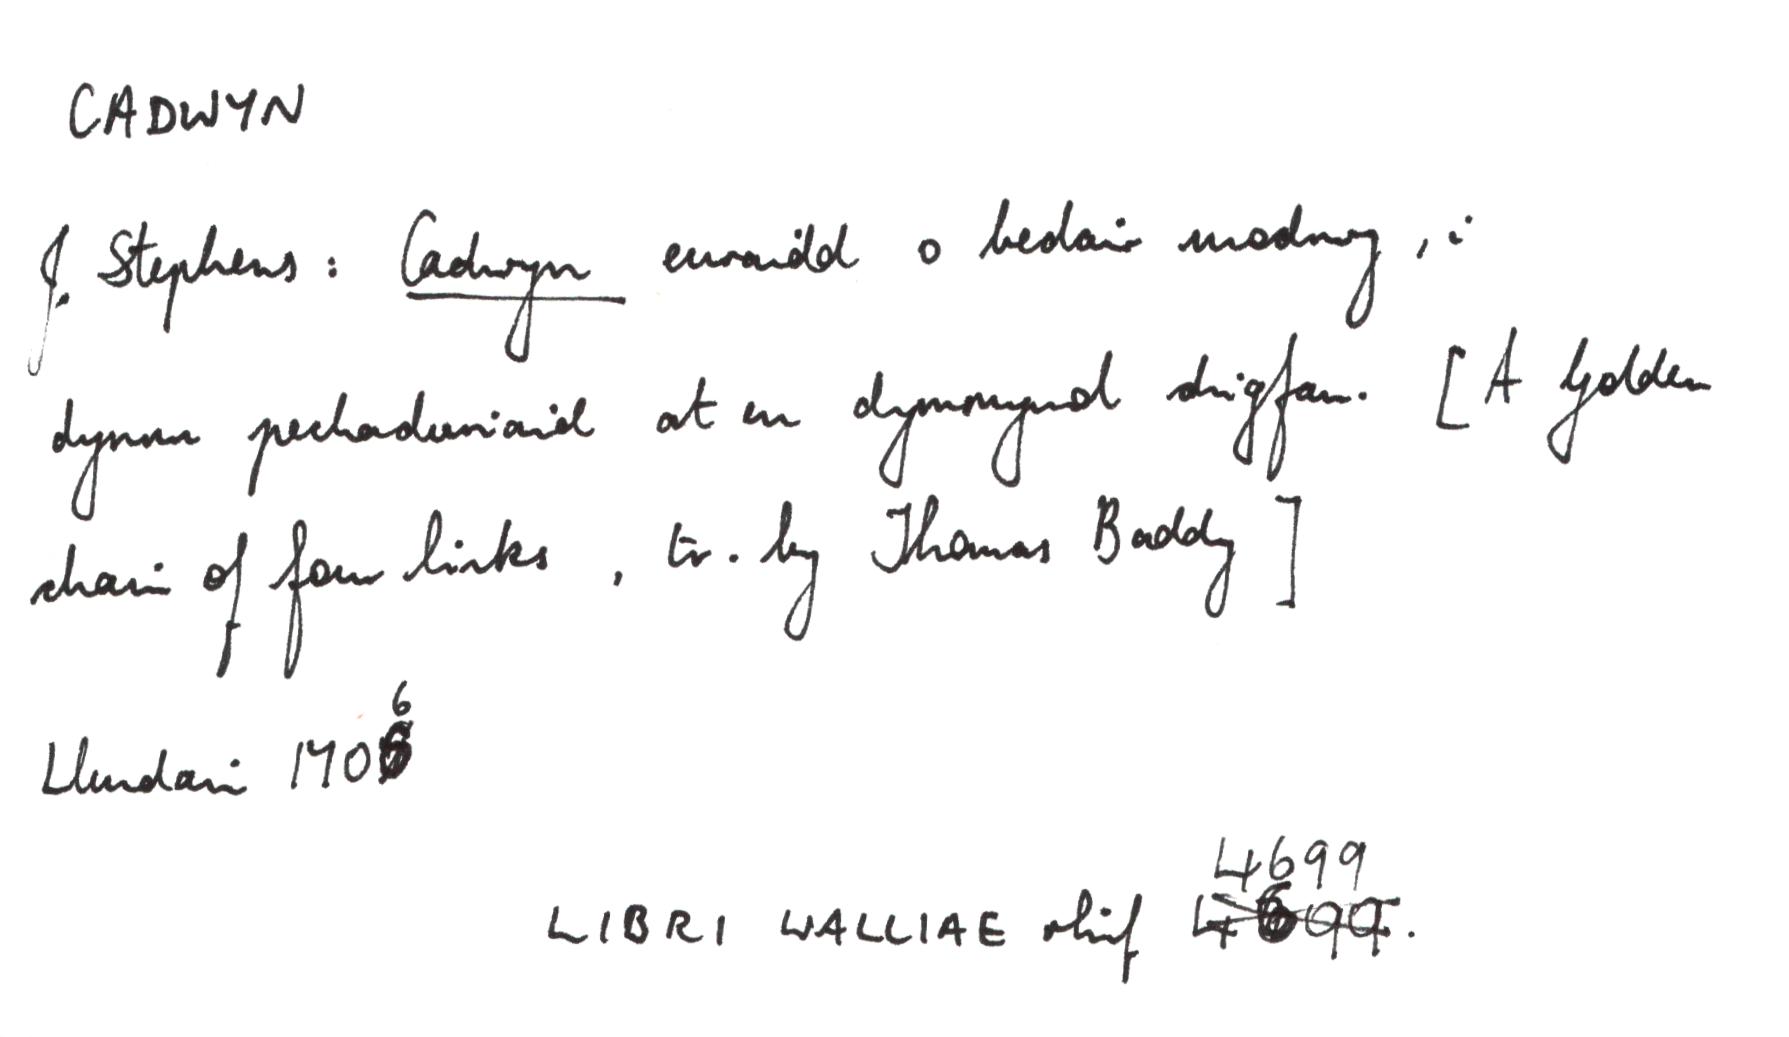 CADWYN
J. Stephens: Cadwyn euraidd o bedair modrwy, i
dynnu pechaduriaid at eu dymmynol drigfan. [A Golden
chain of four links, tr. by Thomas Baddy]
Llundain 1706
LIBRI WALLIAE rhif 4699.